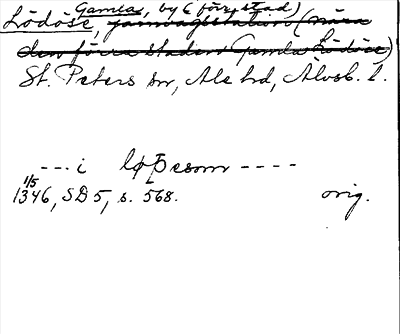 Gamla, by (förr stad)
Lödöse, järnvägsstation (nära
den förra staden Gamla Lödöse)
St. Peters sn, Ale hd, Älvsb. l.
--- i løþesom ----
1/5
1346, SD 5, s. 568. orig.